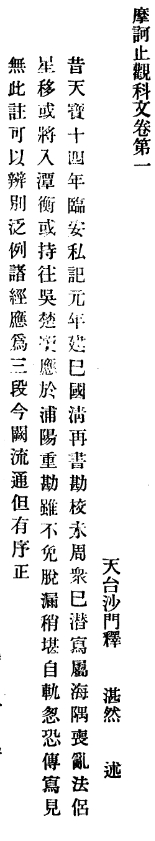 摩訶止觀科文卷第一
天台沙門釋 湛然 述
昔天寶十四年臨安私記元年建巳國清再書勘校未周衆已潛寫屬海隅喪亂法侶
星移或將入潭衡或持往吳楚宋應於浦陽重勘雖不免脫漏稍堪自軌忽恐傳寫見
無此註可以辨別泛例諸經應爲三段今闕流通但有序正